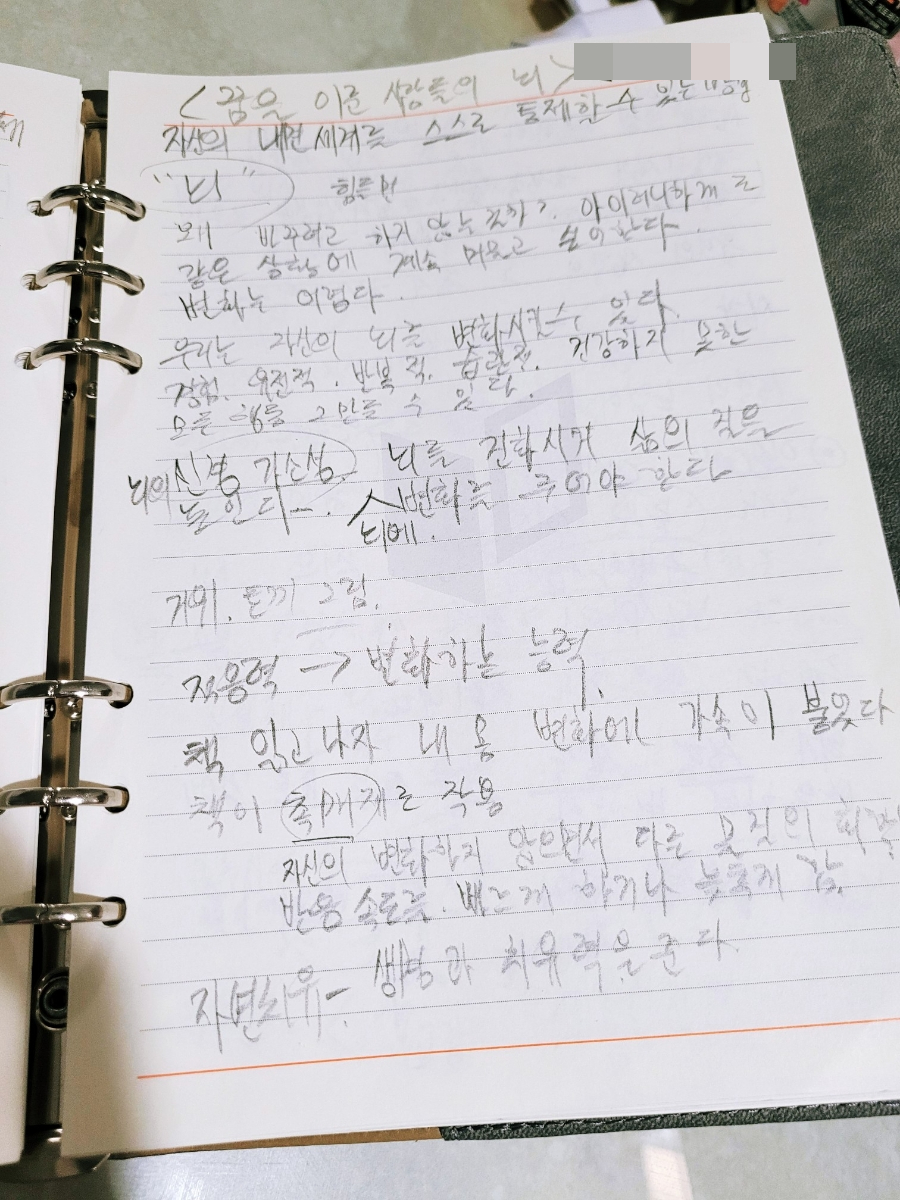 <꿈을 이룬 사람들의 뇌>
자신의 내면세계를 스스로 통제할 수 있는
"뇌" 힘들면
왜 바꾸려고 하지 않는 것까? 아이러니하게도
같은 상황에 계속 머물고 한다.
변화는 어렵다.
우리는 자신의 뇌를 변화시킬 수 있다
경험. 유전적. 반복적. 습관적. 건강하지 못한
모든 행동 그만둘 수 있다.
뇌의 신경 가소성. 뇌를 진화시켜 삶의 질을
높인다-. 뇌에 변화를 주어야 한다
거위. 토끼 그림.
적응력 → 변화하는 능력.
책 읽고나자 내 몸 변화에 가속이 붙었다
책이 촉매제로 작용
자신의 변화하지 않으면서 다른 물질의 화학
반응 속도를 빠르게 하거나 늦추게 함.
자연치유-. 생명과 치유력을 준다